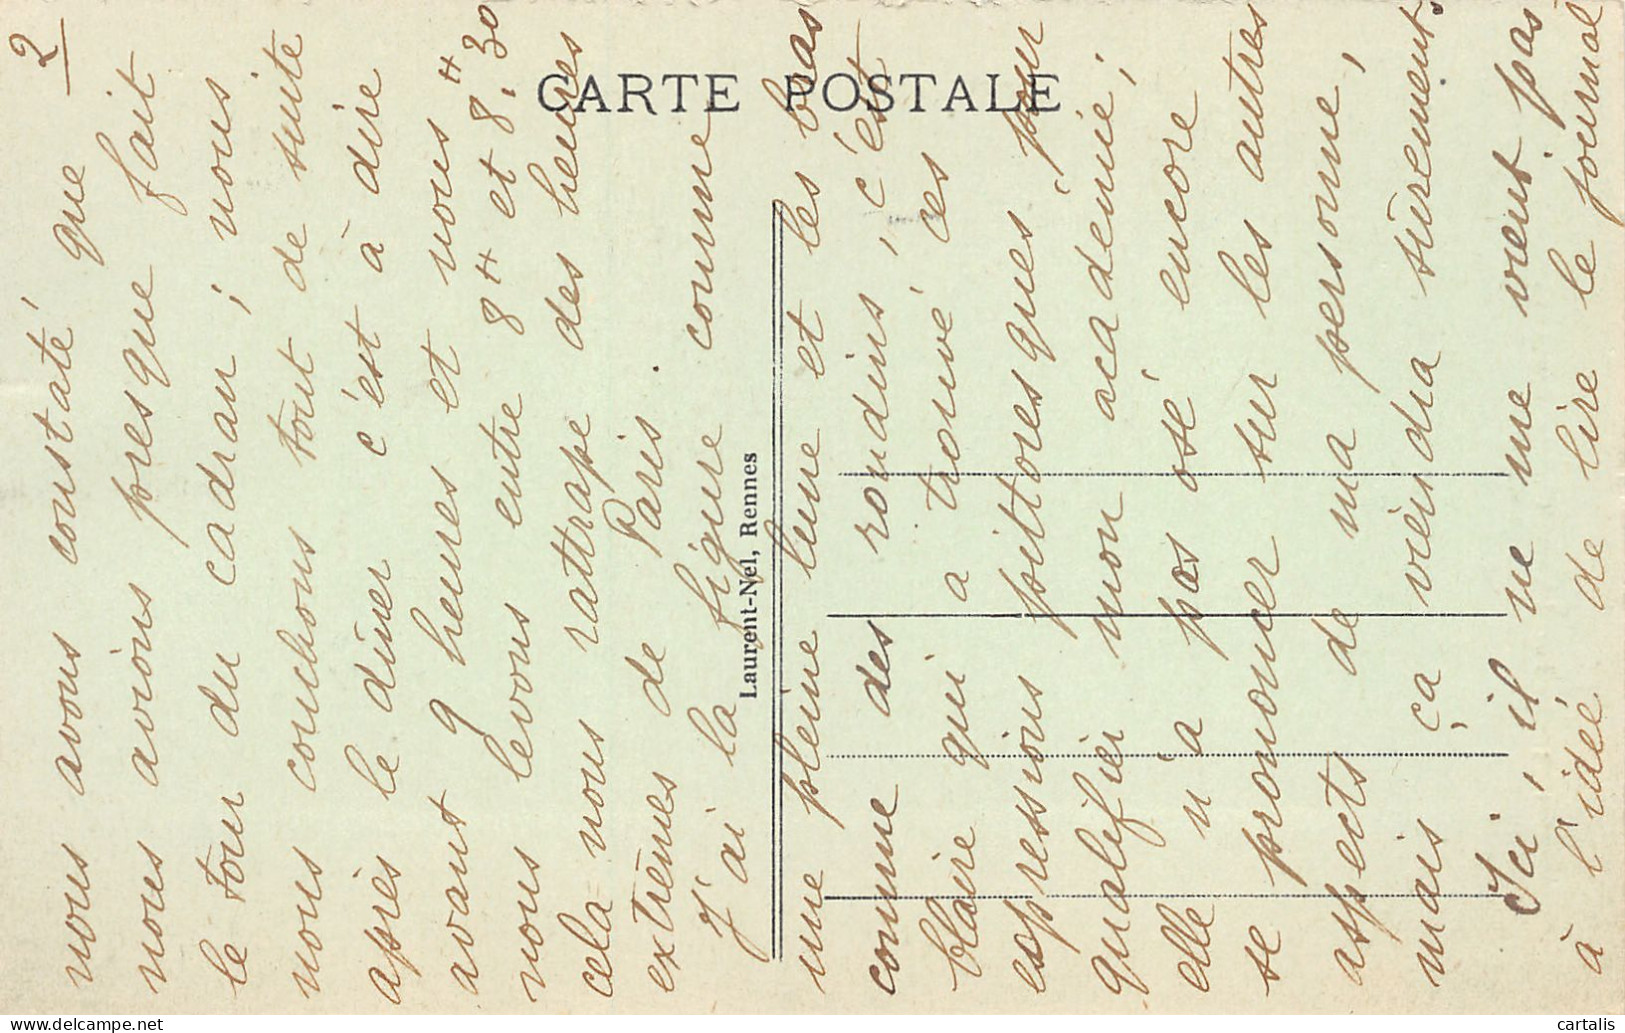 2
nous avons constaté que
nous avions presque fait
le tour du cadran ; nous
nous couchons tout de suite
après le dîner c'est à dire
avant 9 heures et nous
nous levons entre 8H et 8H.30
cela nous rattrape des heures
extrêmes de Paris.
J'ai la figure comme
une pleine lune et les bas
comme des rondins, c'est
blaire qui a trouvé ces
expressions pittoresques pour
qualifier mon académie ;
elle n'a pas osé encore
se prononcer sur les autres
aspects de ma personne,
mais ça viendra sûrement.
Ici, il ne me vient pas
à l'idée de lire le journal
CARTE POSTALE
Laurent-Nel, Rennes
delcampe.net
cartalis